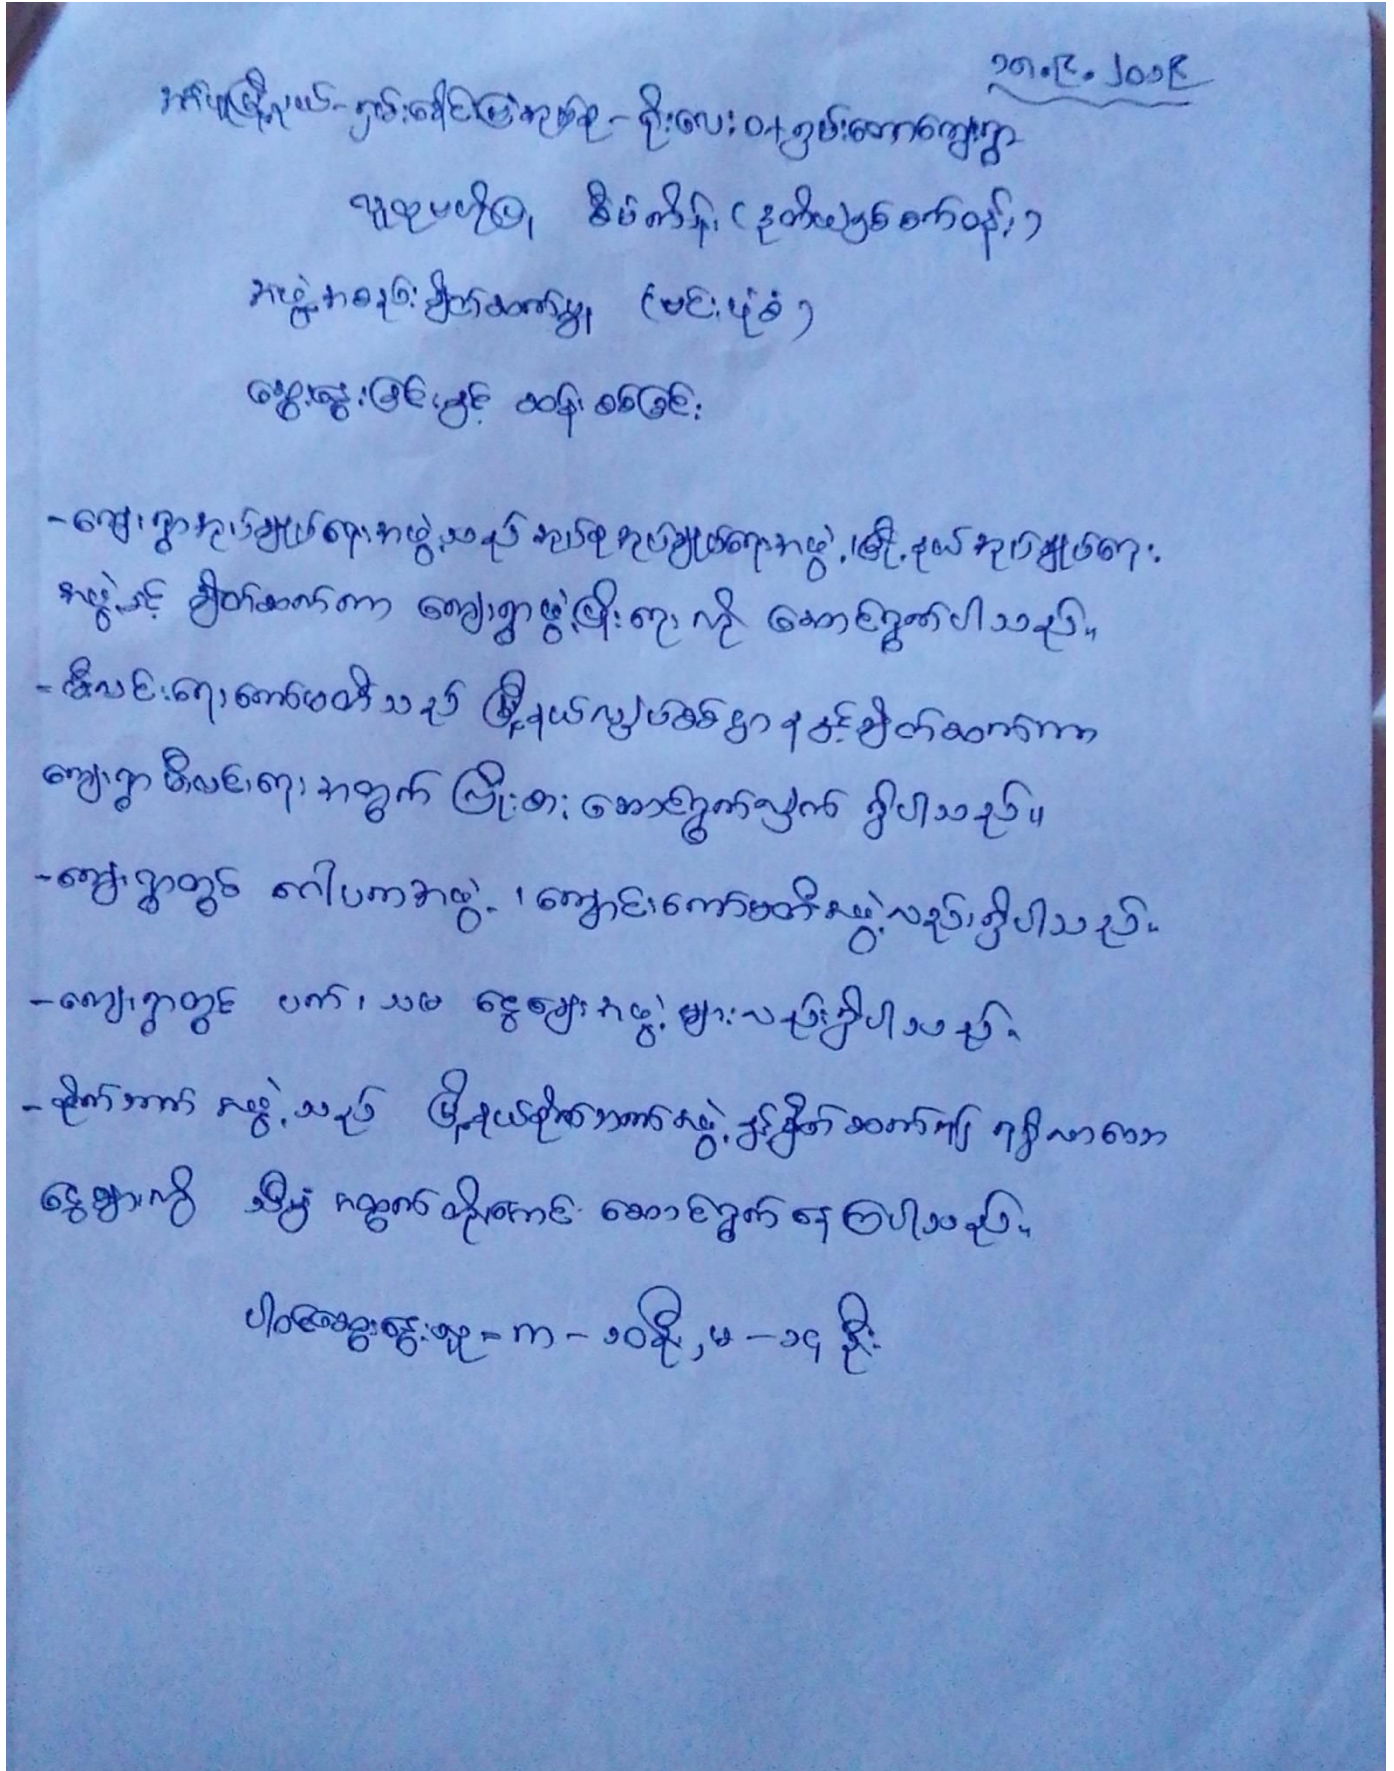 ၁၈.၉.၂၀၁၉
အမ်းမြို့နယ် - ရှမ်းခေါင်းမြဲအုပ်စု - စိုးလေးဝ + ရှမ်းတောကျေးရွာ
လူထုဗဟိုပြု စီမံကိန်း (ဒုတိယနှစ်စက်ဝန်း)
အဖွဲ့အစည်းချိတ်ဆက်မှု (မင်းပုံစံ)
ဆွေးနွေးခြင်းနှင့် ဆန်းစစ်ခြင်း
- ကျေးရွာအုပ်ချုပ်ရေးအဖွဲ့သည် အုပ်စုအုပ်ချုပ်ရေးအဖွဲ့၊ မြို့နယ်အုပ်ချုပ်ရေး
အဖွဲ့နှင့် ချိတ်ဆက်ကာ ကျေးရွာဖွံ့ဖြိုးရေး ကို ဆောင်ရွက်ပါသည်။
- မီးလင်းရေးကော်မတီသည် မြို့နယ်လျှပ်စစ်ဌာနနှင့်ချိတ်ဆက်ကာ
ကျေးရွာ မီးလင်းရေး အတွက် ကြိုးစားဆောင်ရွက်လျှက် ရှိပါသည်။
- ကျေးရွာတွင် ဂေါပကအဖွဲ့၊ ကျောင်းကော်မတီအဖွဲ့လည်းရှိပါသည်။
- ကျေးရွာတွင် ပက်၊ သမ ငွေချေးအဖွဲ့များလည်းရှိပါသည်။
- စိုက်ဘက် အဖွဲ့သည် မြို့နယ်စိုက်ဘက်အဖွဲ့နှင့်ချိတ်ဆက်၍ ရရှိလာသော
ငွေများကို သီးနှံ အထွက်တိုးကောင်း ဆောင်ရွက်နေကြပါသည်။
ပါဝင်ဆွေးနွေးသူ = ကာ - ၁၀ဦး, မ - ၁၄ ဦး